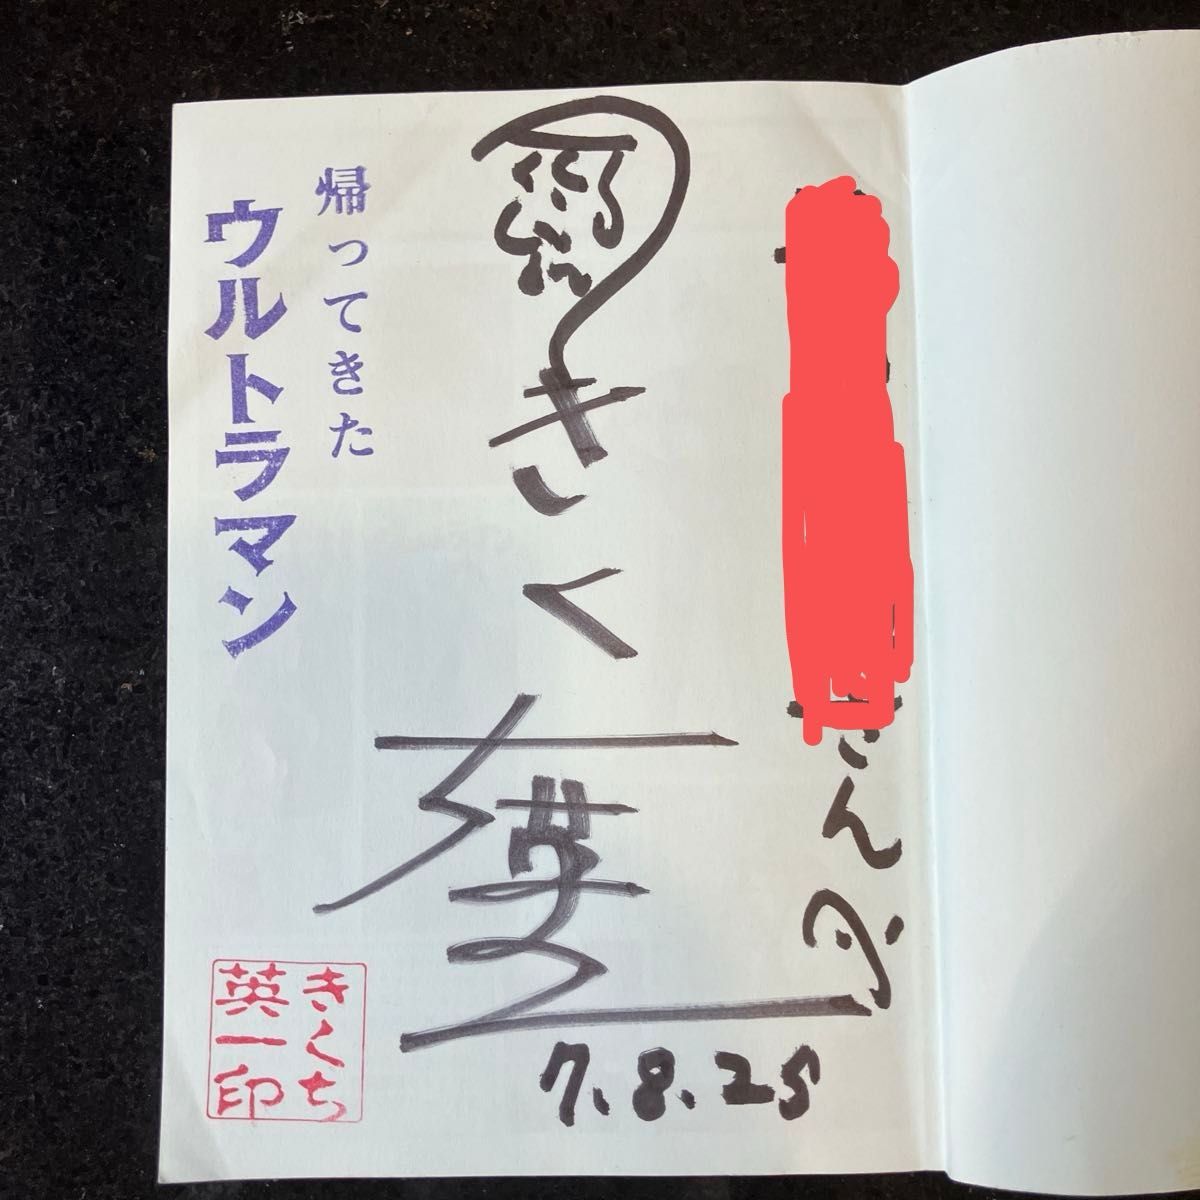 さんゑ
きくち英一
7.8.25
帰ってきた
ウルトラマン
きくち
英一印